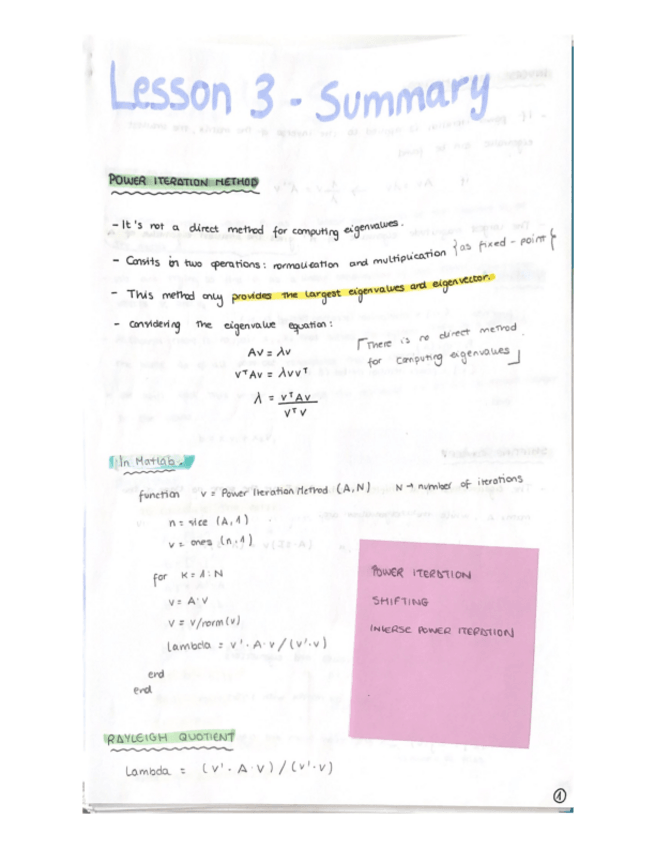 Lesson 3 - Summary
POWER ITERATION METHOD
- It's not a direct method for computing eigenvalues.
- Consits in two operations: normalization and multiplication {as fixed-point}
- This method only provides the largest eigenvalues and eigenvector.
- Considering the eigenvalue equation:
Av = λv
vᵀAv = λvvᵀ
λ = vᵀAv / vᵀv
There is no direct method
for computing eigenvalues
In Matlab.
function v = Power Iteration Method (A,N) N → number of iterations
n = size (A,1)
v = ones (n,1)
for K = 1:N
v = A·v
v = v/norm(v)
lambda = v'·A·v/(v'·v)
end
end
POWER ITERATION
SHIFTING
INVERSE POWER ITERATION
RAYLEIGH QUOTIENT
Lambda = (v'·A·v)/(v'·v)
1